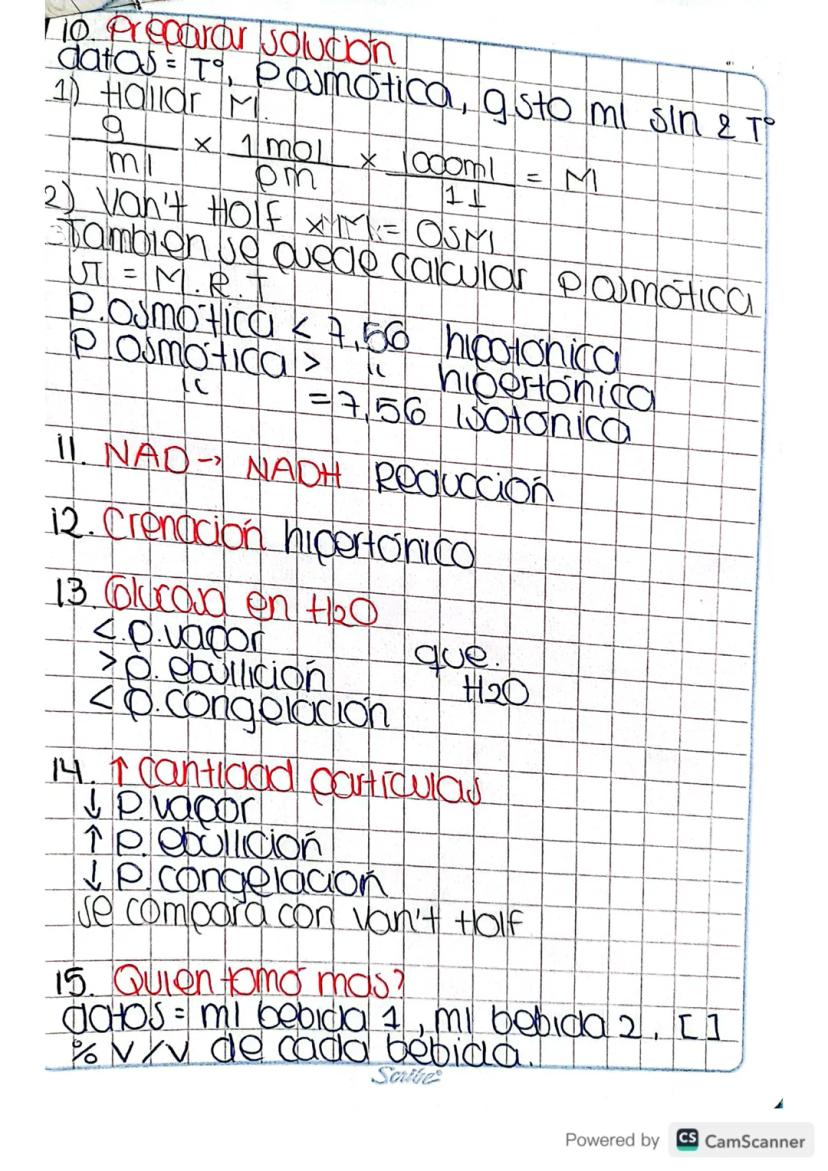 10. Preparar solución
datos = T°, Posmótica, gsto ml sln 2 T°
1) Hallar M.
g/ml × 1 mol/pm × 1000ml/1L = M
2) Van't Holf × M = OSM
También se puede calcular Posmótica
π = M.R.T
P.osmótica < 7,56 hipotónica
P.osmótica > " hipertónica
" = 7,56 isotónica
11. NAD → NADH Reducción
12. Crenación hipertónico
13. Glucosa en H2O
< p.vapor
> p.ebullición que H2O
< p.congelación
14. ↑ cantidad partículas
↓ P.vapor
↑ P.ebullición
↓ P.congelación
se compara con Van't Holf
15. Quien tomó mas?
datos = ml bebida 1, ml bebida 2, [ ]
% V/V de cada bebida.
Scribe
Powered by CS CamScanner